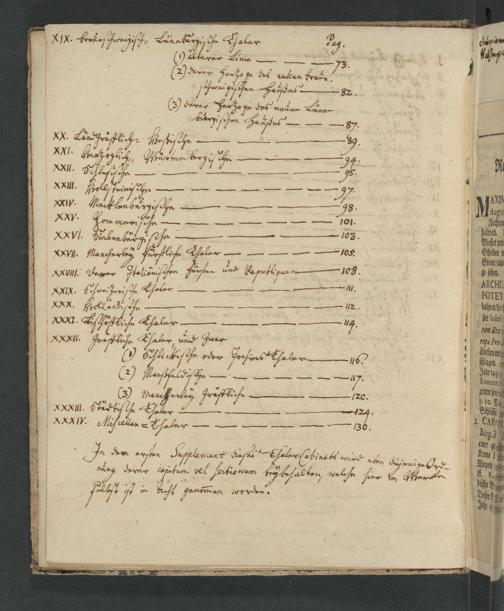 XIX. Braunschweigisch, Lüneburgische Thaler Pag.
(1) älterer Linie — 73.
(2) derer Hertzoge des neuen Braun-
schweigischen Haußes — 82.
(3) derer Hertzoge des neuen Lüne-
burgischen Haußes — 87.
XX. Landgräfflich-Hessische — 89.
XXI. Hertzoglich, Würtembergische — 94.
XXII. Schlesische — 95.
XXIII. Hollsteinische — 97.
XXIV. Mecklenburgische — 98.
XXV. Pommerische — 101.
XXVI. Siebenbürgische — 103.
XXVII. Mancherley Fürstliche Thaler — 105.
XXVIII. Derer Italiänischen Fürsten und Republiquen — 108.
XXIX. Schweitzerische Thaler — 111.
XXX. Holländische — 112.
XXXI. Bischöffliche Thaler — 114.
XXXII. Gräffliche Thaler und zwar
(1) Schlickische oder Joachims Thaler — 116.
(2) Mansfeldische — 117.
(3) Mancherley Gräffliche — 120.
XXXIII. Städtische Thaler — 124.
XXXIV. Thaler — 136.
In dem ersten Supplement dieses Thaler Cabinets wird eben diejenige Ord-
nung derer capitum vel sectionum beybehalten, welche hier im Wercke
selbst ist in acht genommen worden.
MAXIM
ARCHI
POTEN